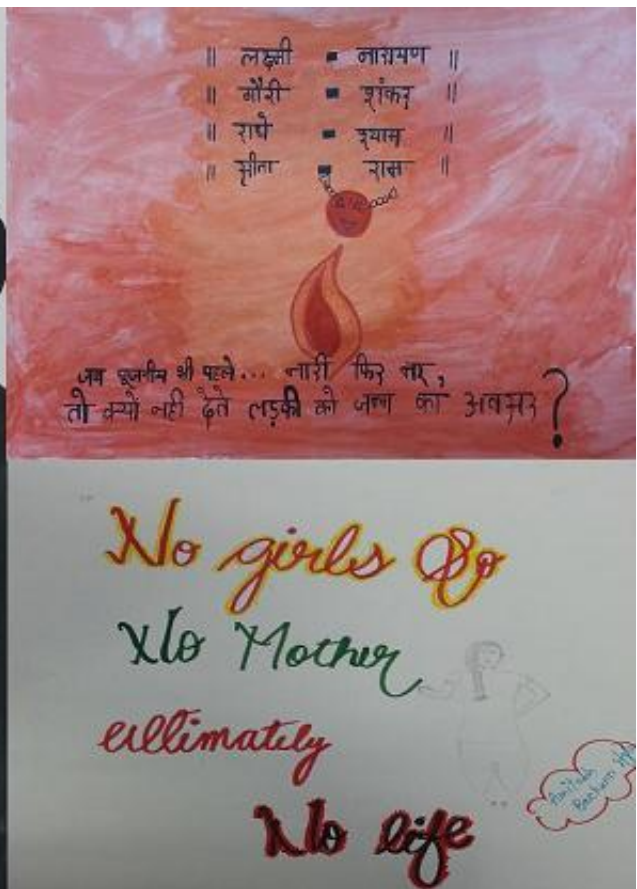 ॥ लक्ष्मी - नारायण ॥
॥ गौरी - शंकर ॥
॥ राधे - श्याम ॥
॥ सीता - राम ॥
जब पूजनीय थी पहले... नारी फिर नर,
तो क्यों नही देते लड़की को जन्म का अवसर ?
No girls So
No Mother
ultimately
No life